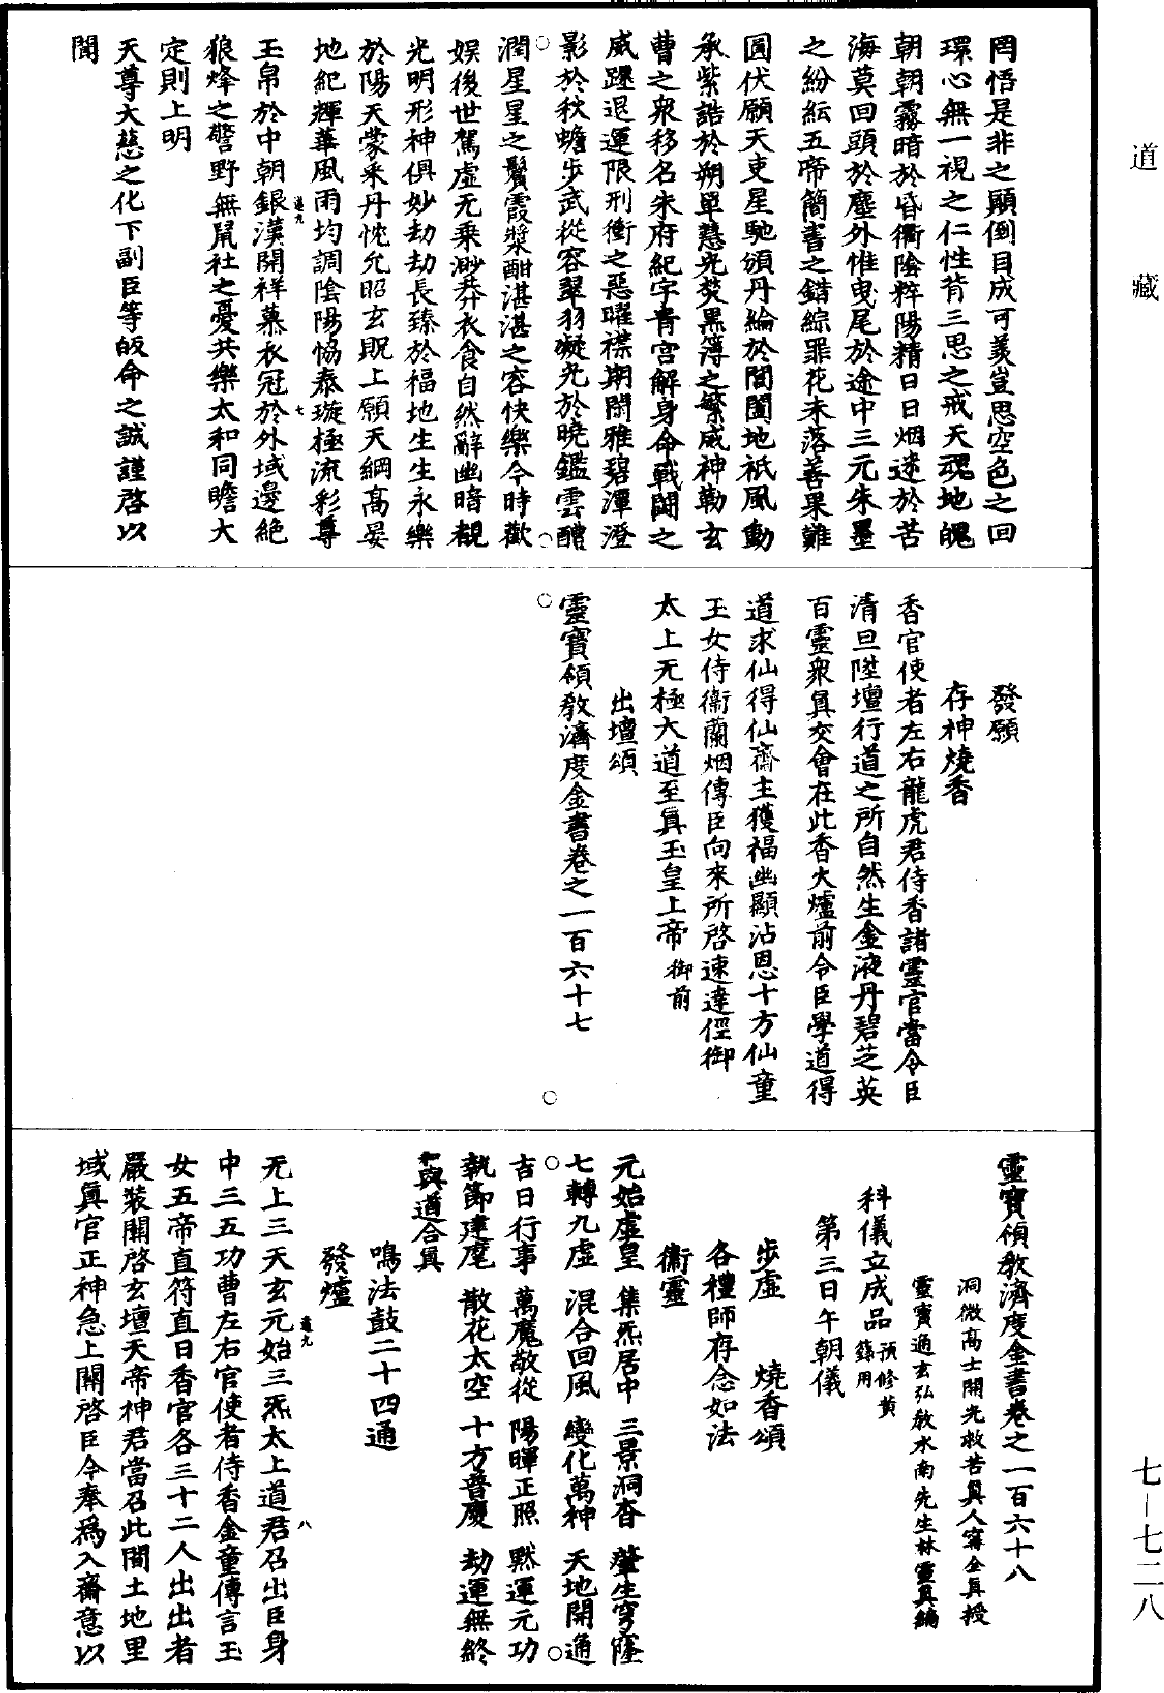 道藏
罔悟是非之顚倒目成可羡豈思空色之回
環心無一視之仁性背三思之戒天魂地魄
朝朝霧暗於昏衢陰粹陽精日日烟迷於苦
海莫回頭於塵外惟曳尾於途中三元朱墨
之紛紜五帝簡書之錯綜罪花未落善果難
圓伏願天吏星馳頒丹綸於閶闔地祇風動
承紫誥於朔單慧光焚黑簿之繁威神勒玄
曹之衆移名朱府紀字青宫解身命戰鬪之
威踵退運限刑衝之惡曜襟期閑雅碧潭澄
影於秋蟾步武從容翠羽凝光於曉鑑雲醴
潤星星之鬢霞漿酣湛湛之容快樂今時歡
娱後世駕虛无乘渺莽衣食自然辭幽暗覩
光明形神俱妙劫劫長臻於福地生生永樂
於陽天蒙釆丹忱允昭玄貺上願天綱高晏
地紀輝華風雨均調陰陽恊泰璇極流彩尊
玉帛於中朝銀漢開祥慕衣冠於外域邊絶
狼烽之警野無鼠社之憂共樂太和同瞻大
定則上明
天尊大慈之化下副臣等皈命之誠謹啓以
聞
發願
存神燒香
香官使者左右龍虎君侍香諸靈官當令臣
清旦陞壇行道之所自然生金液丹碧芝英
百靈衆眞交會在此香火爐前令臣學道得
道求仙得仙齋主獲福幽顯沾恩十方仙童
玉女侍衞蘭烟傳臣向來所啓速達俓御
太上无極大道至眞玉皇上帝御前
出壇頌
靈寶領教濟度金書卷之一百六十七
靈寶領教濟度金書卷之一百六十八
洞微高士開光救苦眞人甯全眞授
靈寶通玄弘教水南先生林靈眞編
科儀立成品預修黄籙用
第三日午朝儀
步虛 燒香頌
各禮師存念如法
衞靈
元始虛皇 集炁居中 三景洞杳 肇生穹窿
七轉九虛 混合回風 變化萬神 天地開通
吉日行事 萬魔敬從 陽暉正照 黙運元功
執節建麾 散花太空 十方普慶 劫運無終
和與道合眞
鳴法鼓二十四通
發爐
无上三天玄元始三炁太上道君召出臣身
中三五功曹左右官使者侍香金童傳言玉
女五帝直符直日香官各三十二人出出者
嚴裝關啓玄壇天帝神君當召此間土地里
域眞官正神急上關啓臣今奉爲入齋意以
七—七二八